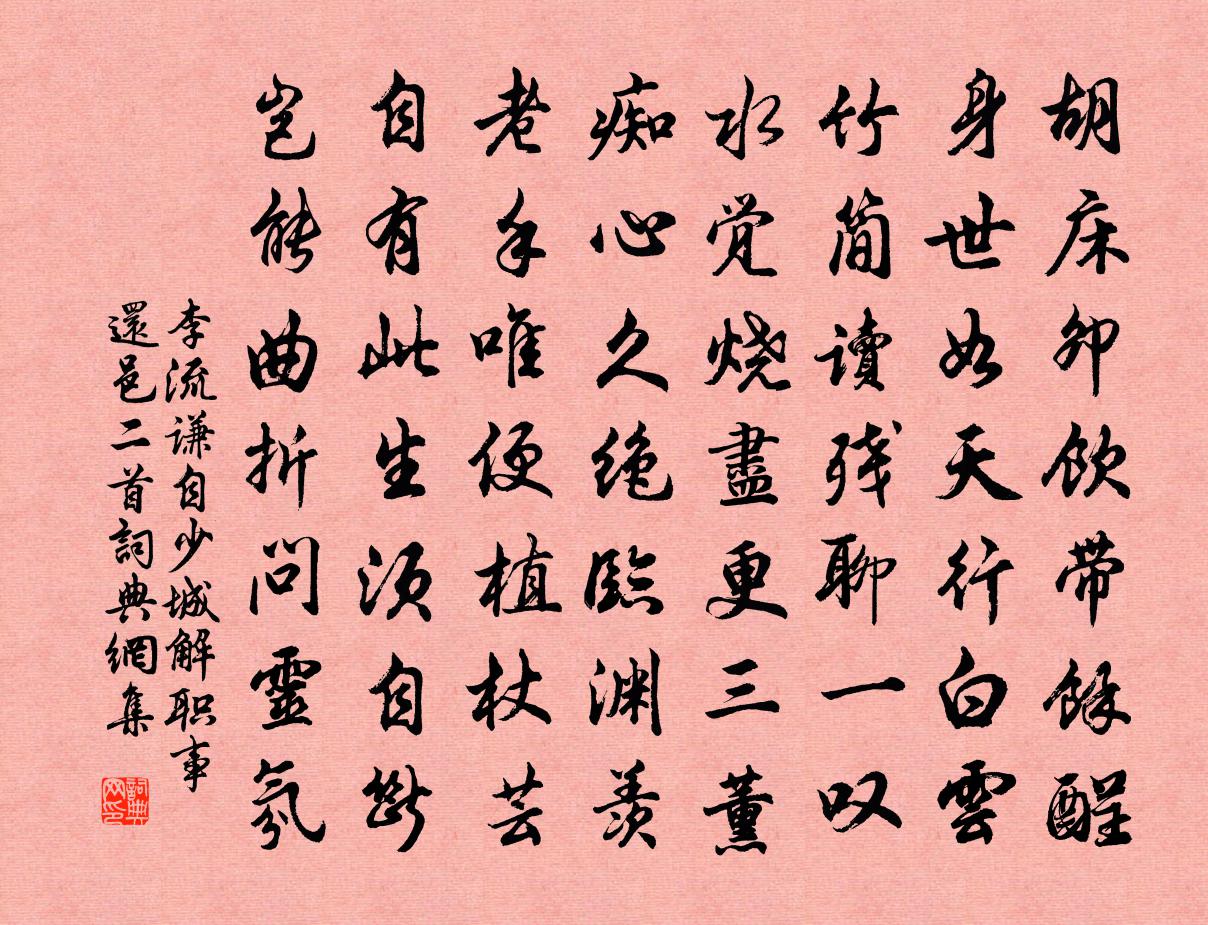 胡床卯饮带餘醒
身世如天行白雲
竹简讀残聊一叹
水觉烧盡更三薰
痴心久绝臨渊羡
老手唯便植杖芸
自有此生须自断
岂能曲折问靈氛
李流谦自少城解职事
還邑二首詞典網集
詞典网印